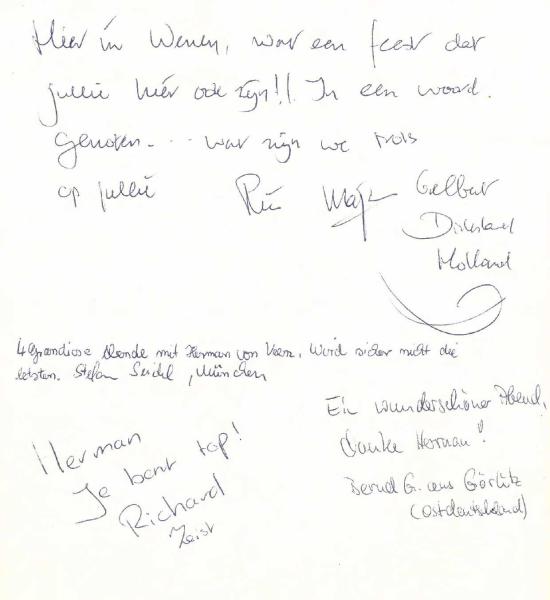 Hier in Wenen, wat een feest dat
jullie hier ook zijn!! In een woord.
genoten... wat zijn we trots
op jullie
Holland
4 Grandiose Abende mit Herman van Veen. Wird sicher nicht die
letzten. Stefan Seidel, München
Ein wunderschöner Abend,
danke Herman!
Bernd G. aus Görlitz
(Ostdeutschland)
Herman
Je bent top!
Richard
Zeist